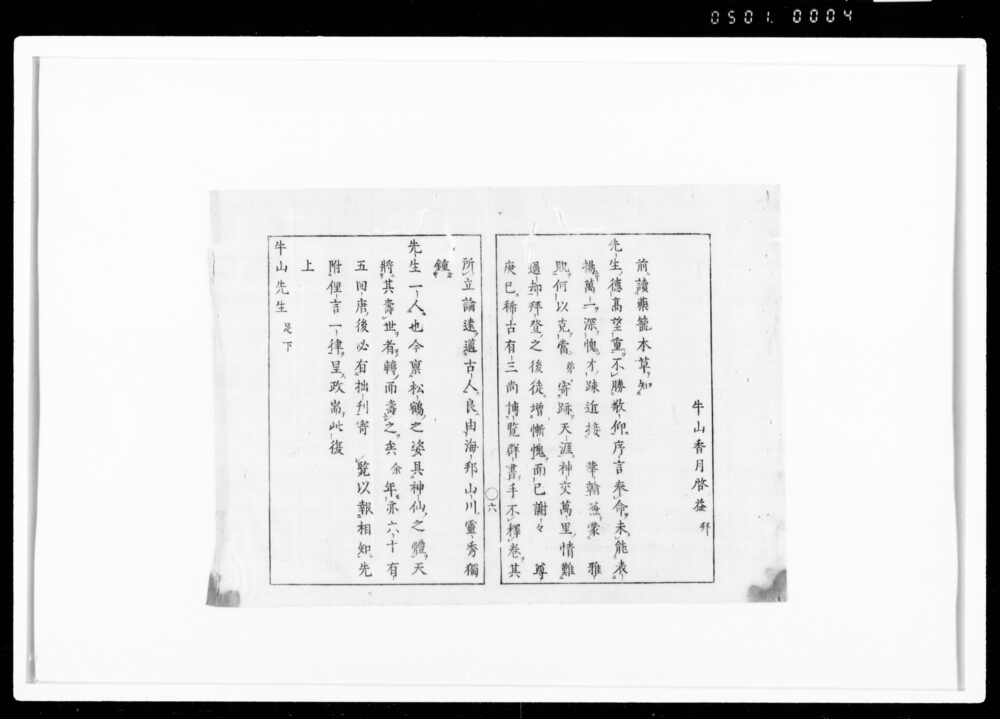 0501.0004
牛山香月啓益 拜
前讀藥籠本草知
先生德高望重不勝敬仰序言奉命未能表
揚萬一深愧才踈近接 華翰無棠 雅
貺何以克當 弟寄跡天涯神交萬里情難
過却拜登之後徒增慚愧而已謝々 尊
庚已稀古有三尚博覧群書手不釋卷其
〇六
所立論遠邁古人良由海邦山川靈秀獨
鍾
先生一人也今禀松鶴之姿具神仙之體天
將其壽世者轉而壽之矣 余年亦六十有
五回唐後必有拙刋寄 覧以報相知先
附俚言一律呈政耑此復
上
牛山先生 足下